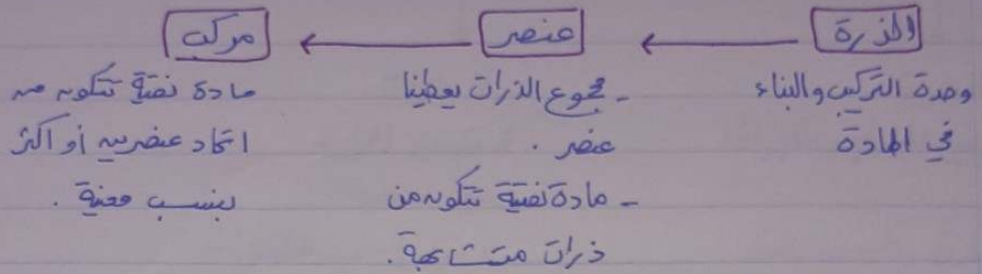 الذرة
عنصر
مركب
وحدة التركيب والبناء
في المادة
- مجموع الذرات يعطينا
عنصر .
- مادة نقية تتكون من
ذرات متشابهة .
مادة نقية تتكون من
اتحاد عنصرين أو أكثر
بنسب معينة .